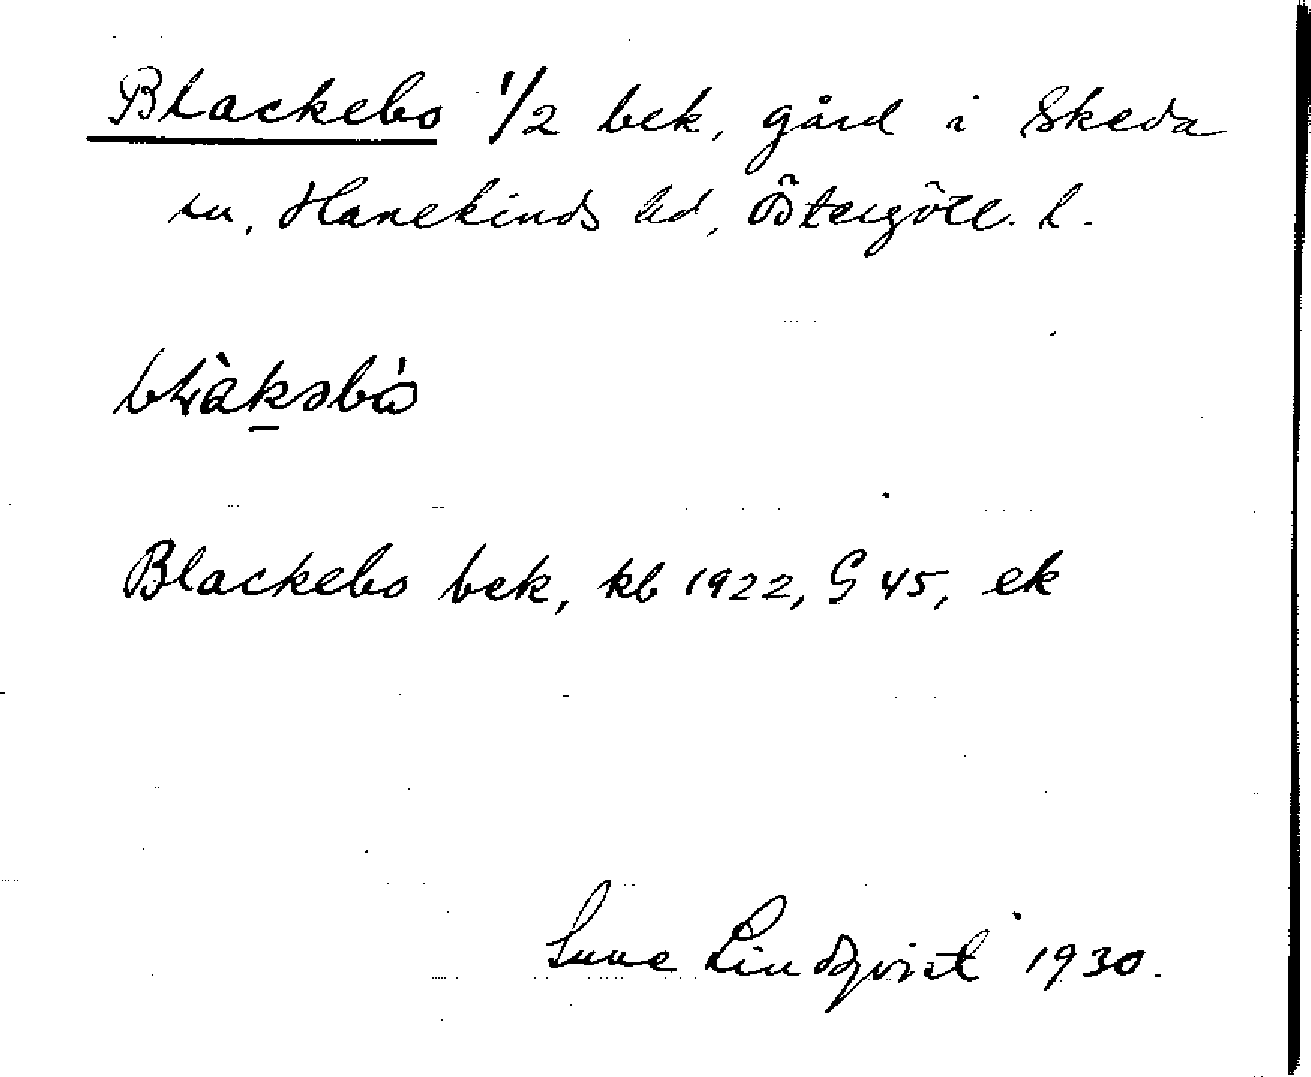 Blackebo 1/2 bek, gård i Skeda
sn, Hanekinds hd, Östergötl. l.
blàkəbó
Blackebo bek, kb 1922, G 45, ek
Sune Lindqvist 1930.